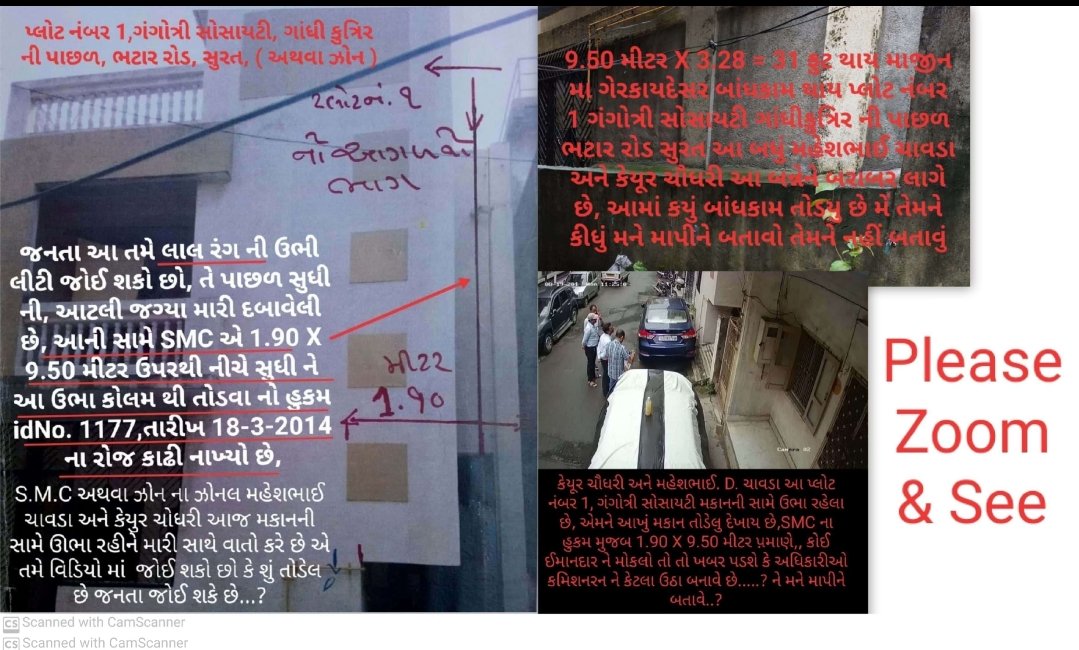 પ્લોટ નંબર 1,ગંગોત્રી સોસાયટી, ગાંધી કુત્રિર
ની પાછળ, ભટાર રોડ, સુરત, ( અથવા ઝોન )
પ્લોટ નં. ૧
નો આગળનો
ભાગ
જનતા આ તમે લાલ રંગ ની ઉભી
લીટી જોઈ શકો છો, તે પાછળ સુધી
ની, આટલી જગ્યા મારી દબાવેલી
છે, આની સામે SMC એ 1.90 X
9.50 મીટર ઉપરથી નીચે સુધી ને
આ ઉભા કોલમ થી તોડવા નો હુકમ
idNo. 1177,તારીખ 18-3-2014
ના રોજ કાઢી નાખ્યો છે,
મીટર
1.90
S.M.C અથવા ઝોન ના ઝોનલ મહેશભાઈ
ચાવડા અને કેયુર ચોધરી આજ મકાનની
સામે ઊભા રહીને મારી સાથે વાતો કરે છે એ
તમે વિડિયો માં જોઈ શકો છો કે શું તોડેલ
છે જનતા જોઈ શકે છે...?
9.50 મીટર X 3.28 = 31 ફુટ થાય માજીન
મા ગેરકાયદેસર બાંધકામ થાય પ્લોટ નંબર
1 ગંગોત્રી સોસાયટી ગાંધીકુત્રિર ની પાછળ
ભટાર રોડ સુરત આ બધુ મહેશભાઈ ચાવડા
અને કેયૂર ચૌધરી આ બન્નેને બરાબર લાગે
છે, આમાં કયું બાંધકામ તોડયુ છે મેં તેમને
કીધું મને માપીને બતાવો તેમને નહીં બતાવું
Camera 02
કેયૂર ચૌધરી અને મહેશભાઈ. D. ચાવડા આ પ્લોટ
નંબર 1, ગંગોત્રી સોસાયટી મકાનની સામે ઉભા રહેલા
છે, એમને આખું મકાન તોડેલુ દેખાય છે,SMC ના
હુકમ મુજબ 1.90 X 9.50 મીટર પ્રમાણે,, કોઈ
ઈમાનદાર ને મોકલો તો તો ખબર પડશે કે અધિકારીઓ
કમિશનરન ને કેટલા ઉઠા બનાવે છે.....? ને મને માપીને
બતાવે..?
Please
Zoom
& See
CS Scanned with CamScanner
CS Scanned with CamScanner